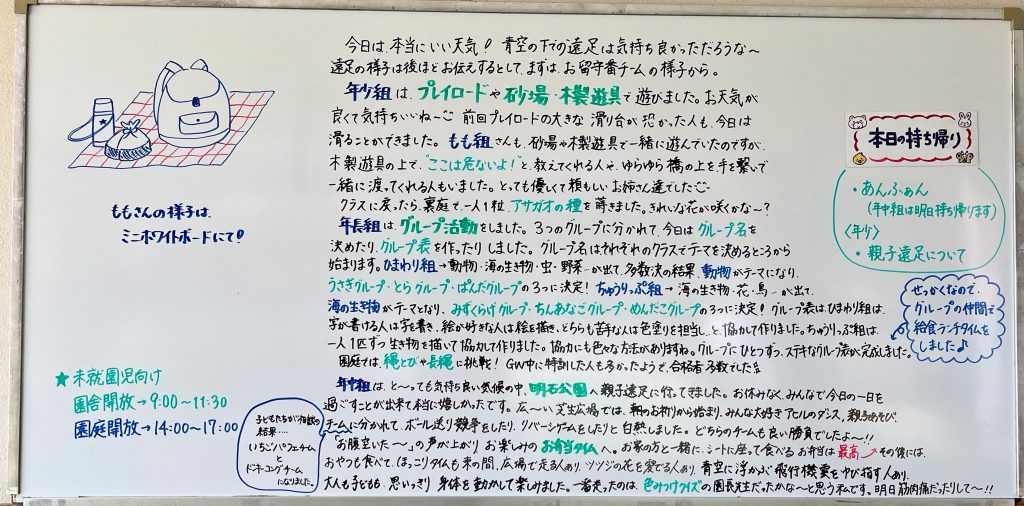 今日は、本当にいい天気！ 青空の下での遠足は気持ち良かっただろうな〜
遠足の様子は後ほどお伝えするとして、まずは、お留守番チームの様子から。
年少組は、プレイロードや砂場・木製遊具で遊びました。お天気が
良くて気持ちいいね〜 前回プレイロードの大きな滑り台が恐かった人も、今日は
滑ることができました。もも組さんも、砂場や木製遊具で一緒に遊んでいたのですが、
木製遊具の上で、"ここは危ないよ！"と、教えてくれる人や、ゆらゆら橋の上を手を繋いで
一緒に渡ってくれる人もいました。とっても優しくて頼もしいお姉さん達でした
クラスに戻ったら、裏庭で、一人1粒、アサガオの種を蒔きました。きれいな花が咲くかな〜？
年長組は、グループ活動をしました。3つのグループに分かれて、今日はグループ名を
決めたり、グループ表を作ったりしました。グループ名はそれぞれのクラスでテーマを決めるところから
始まります。ひまわり組→動物・海の生き物・虫・野菜…が出て、多数決の結果、動物がテーマになり、
うさぎグループ・とらグループ・ぱんだグループの3つに決定！ ちゅうりっぷ組→海の生き物・花・鳥…が出て、
海の生き物がテーマとなり、みずくらげグループ・ちんあなごグループ・めんだこグループの3つに決定！ グループ表は、ひまわり組は、
字が書ける人は字を書き、絵が好きな人は絵を描き、どちらも苦手な人は色塗りを担当し、と、協力して作りました。ちゅうりっぷ組は、
一人1匹ずつ生き物を描いて協力して作りました。協力にも色々な方法がありますね。グループにひとつずつ、ステキなグループ表が完成しました。
園庭では、縄とびや長縄に挑戦！ GW中に特訓した人も多かったようで、合格者多数でした
年中組は、と〜っても気持ち良い気候の中、明石公園へ親子遠足に行ってきました。お休みなく、みんなで今日の一日を
過ごすことが出来て本当に嬉しかったです。広〜い芝生広場では、朝のお祈りから始まり、みんな大好きアヒルのダンス、親子あそび、
チームに分かれて、ボール送り競争をしたり、リバーシゲームをしたりと白熱しました。どちらのチームも良い勝負でしたよ〜!!
「お腹空いた〜」の声が上がり、お楽しみのお弁当タイムへ。お家の方と一緒に、シートに座って食べるお弁当は最高 その後には、
おやつも食べて、ほっこりタイムも束の間、広場で走る人あり、ツツジの花を愛でる人あり、青空に浮かぶ飛行機雲をゆび指す人あり、
大人も子どもも、思いっきり身体を動かして楽しみました。一番走ったのは、色みつけクイズの園長先生だったかな〜と思う私です。明日筋肉痛だったりして〜!!
ももさんの様子は、
ミニホワイトボードにて！
★未就園児向け
園舎開放→9:00〜11:30
園庭開放→14:00〜17:00
子どもたちが相談の
結果…
いちごパフェチーム
と
ドンキーコングチーム
になりました。
本日の持ち帰り
・あんふぁん
（年中組は明日持ち帰ります）
〈年少〉
・親子遠足について
せっかくなので、
グループの仲間で
給食ランチタイムを
しました♪